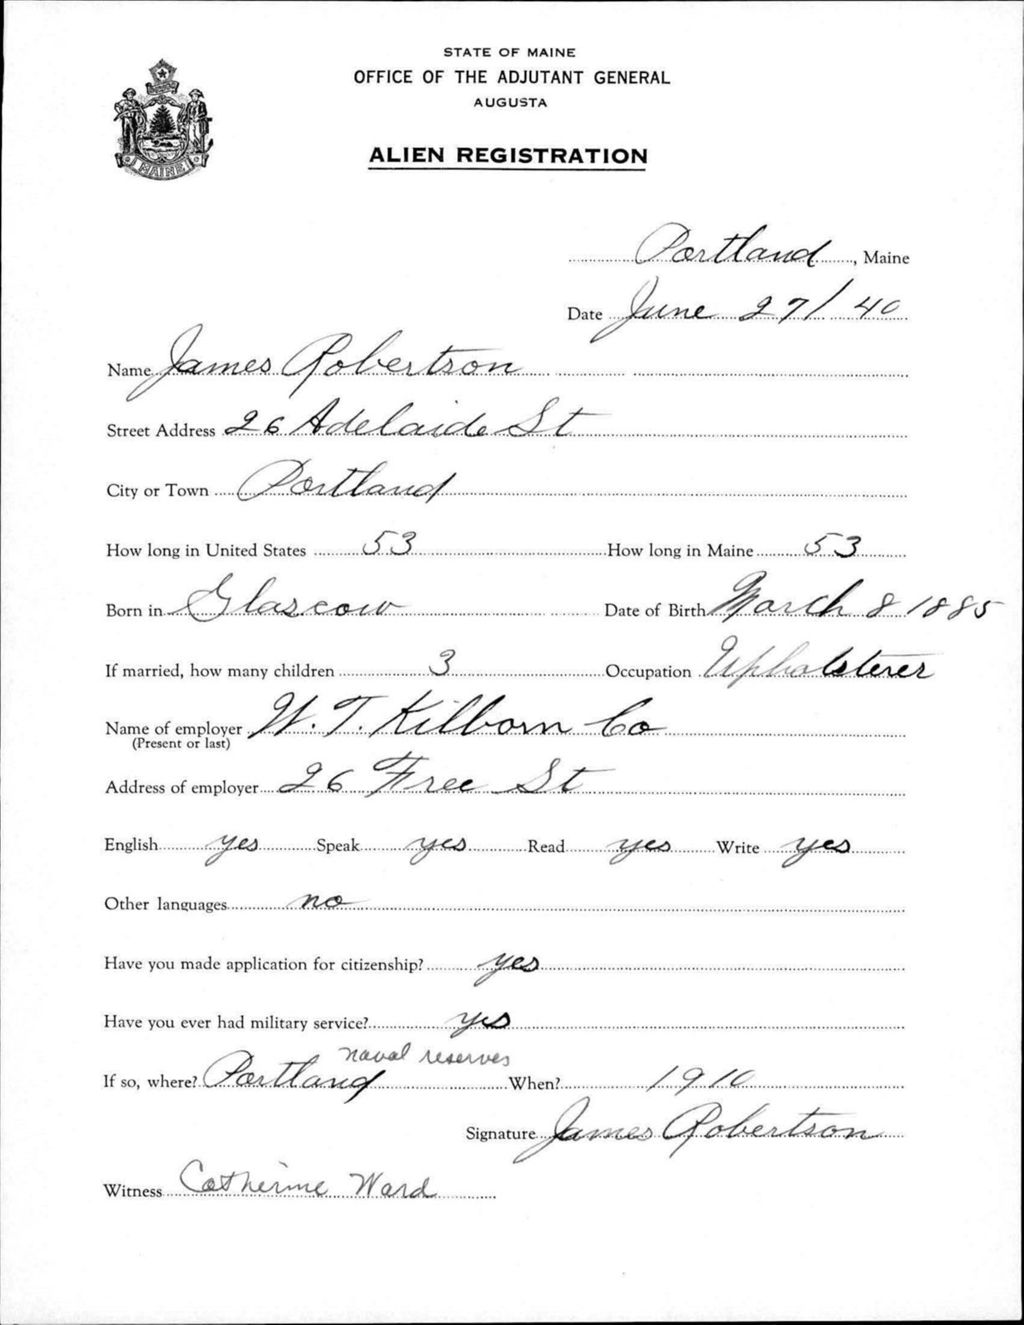 STATE OF MAINE
OFFICE OF THE ADJUTANT GENERAL
AUGUSTA
ALIEN REGISTRATION
MAINE
Portland, Maine
Date June 27/40
Name James Robertson
Street Address 26 Adelaide St
City or Town Portland
How long in United States 53 How long in Maine 53
Born in Glascow Date of Birth March 8 1885
If married, how many children 3 Occupation Upholsterer
Name of employer W. T. Kilborn Co
(Present or last)
Address of employer 26 Free St
English yes Speak yes Read yes Write yes
Other languages no
Have you made application for citizenship? yes
Have you ever had military service? yes
naval reserves
If so, where? Portland When? 1910
Signature James Robertson
Witness Catherine Ward